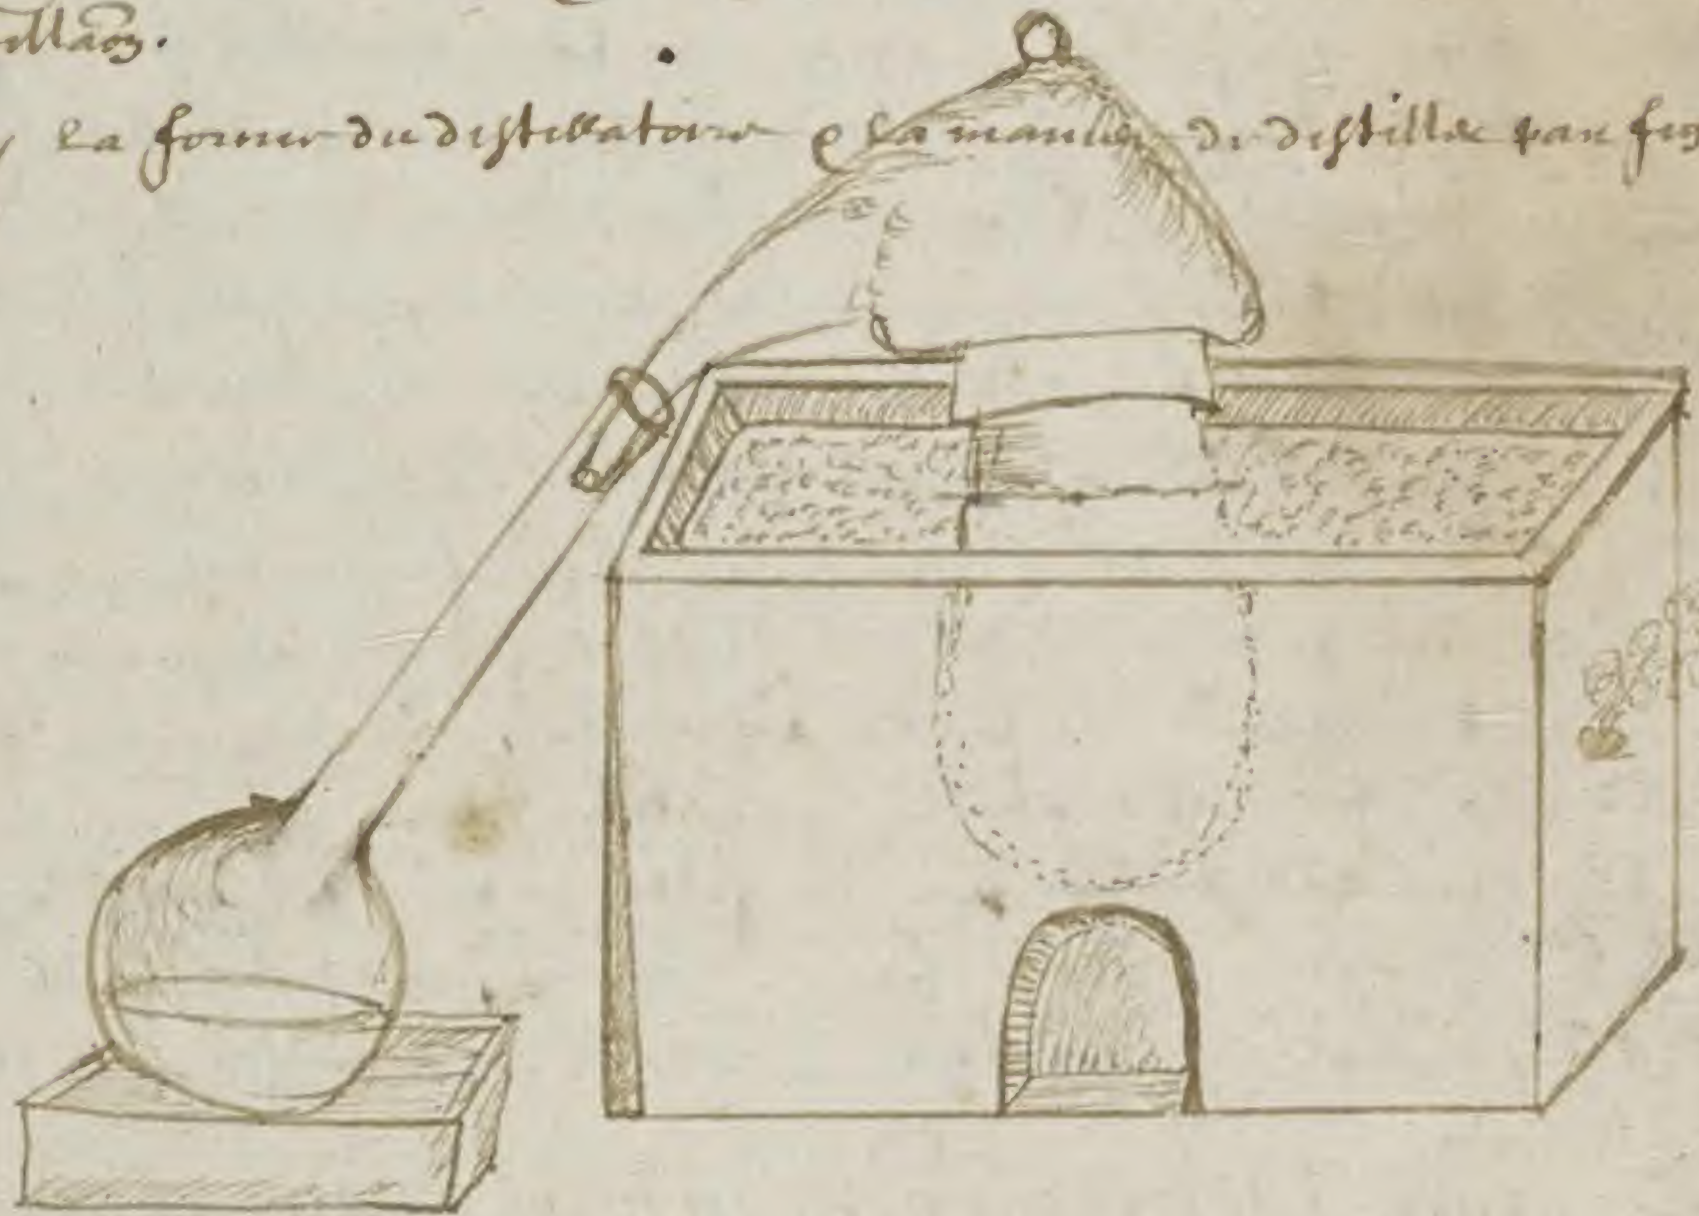 la forme du distillatoire & la maniere de distiller par